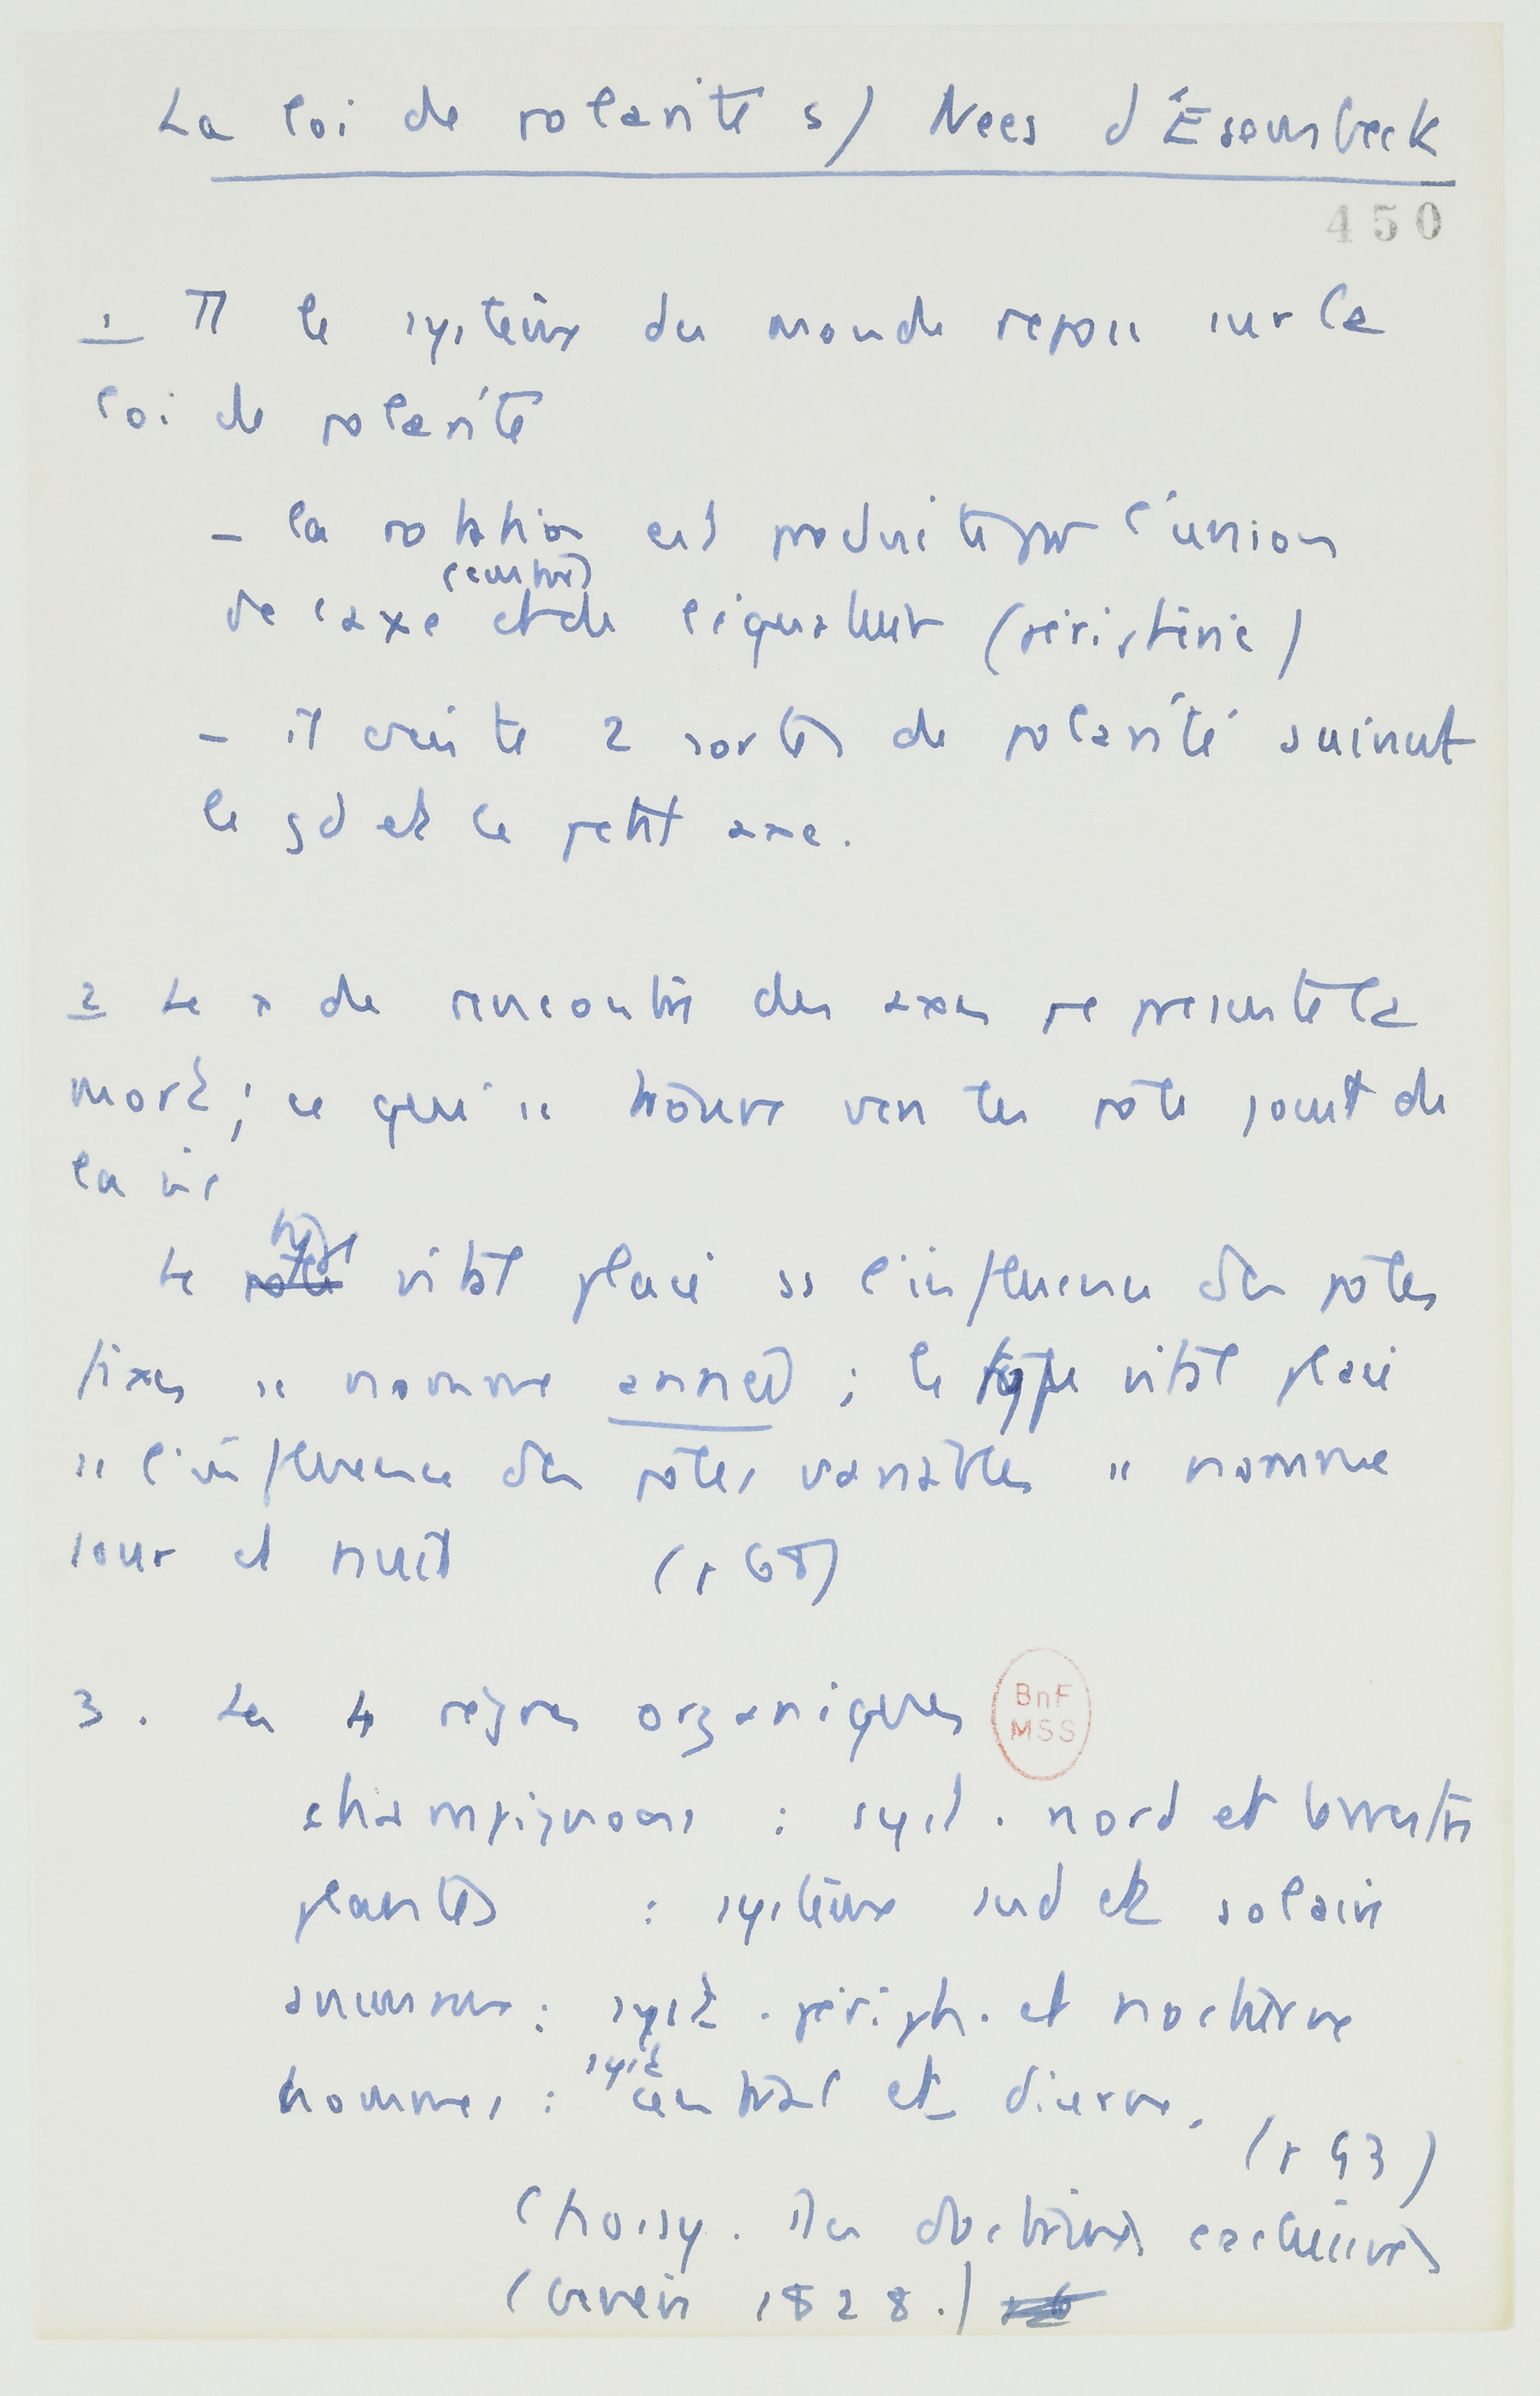 La loi de polarité s/ Nees d'Esembeck
450
1 Tt le système du monde repose sur la
loi de polarité
- la rotation est produite par l'union
(centre)
de l'axe et de l'équateur (périphérie)
- il existe 2 sortes de polarité suivant
le gd et le petit axe.
2 Le p de rencontre des axes représente la
mort ; ce qui se trouve vers les pôles sont de
la vie
type
Le pôle vital placé ss l'influence des pôles
fixes se nomme année ; le type vital placé
ss l'influence des pôles variables se nomme
jour et nuit (p 68)
3. Les 4 règnes organiques
BnF
MSS
champignons : syst. nord et terrestre
plantes : système sud et solaire
animaux : syst. périph. et nocturne
syst
hommes : central et diurne.
(p 93)
Choisy. Des doctrines exclusives
(Genève 1828.)